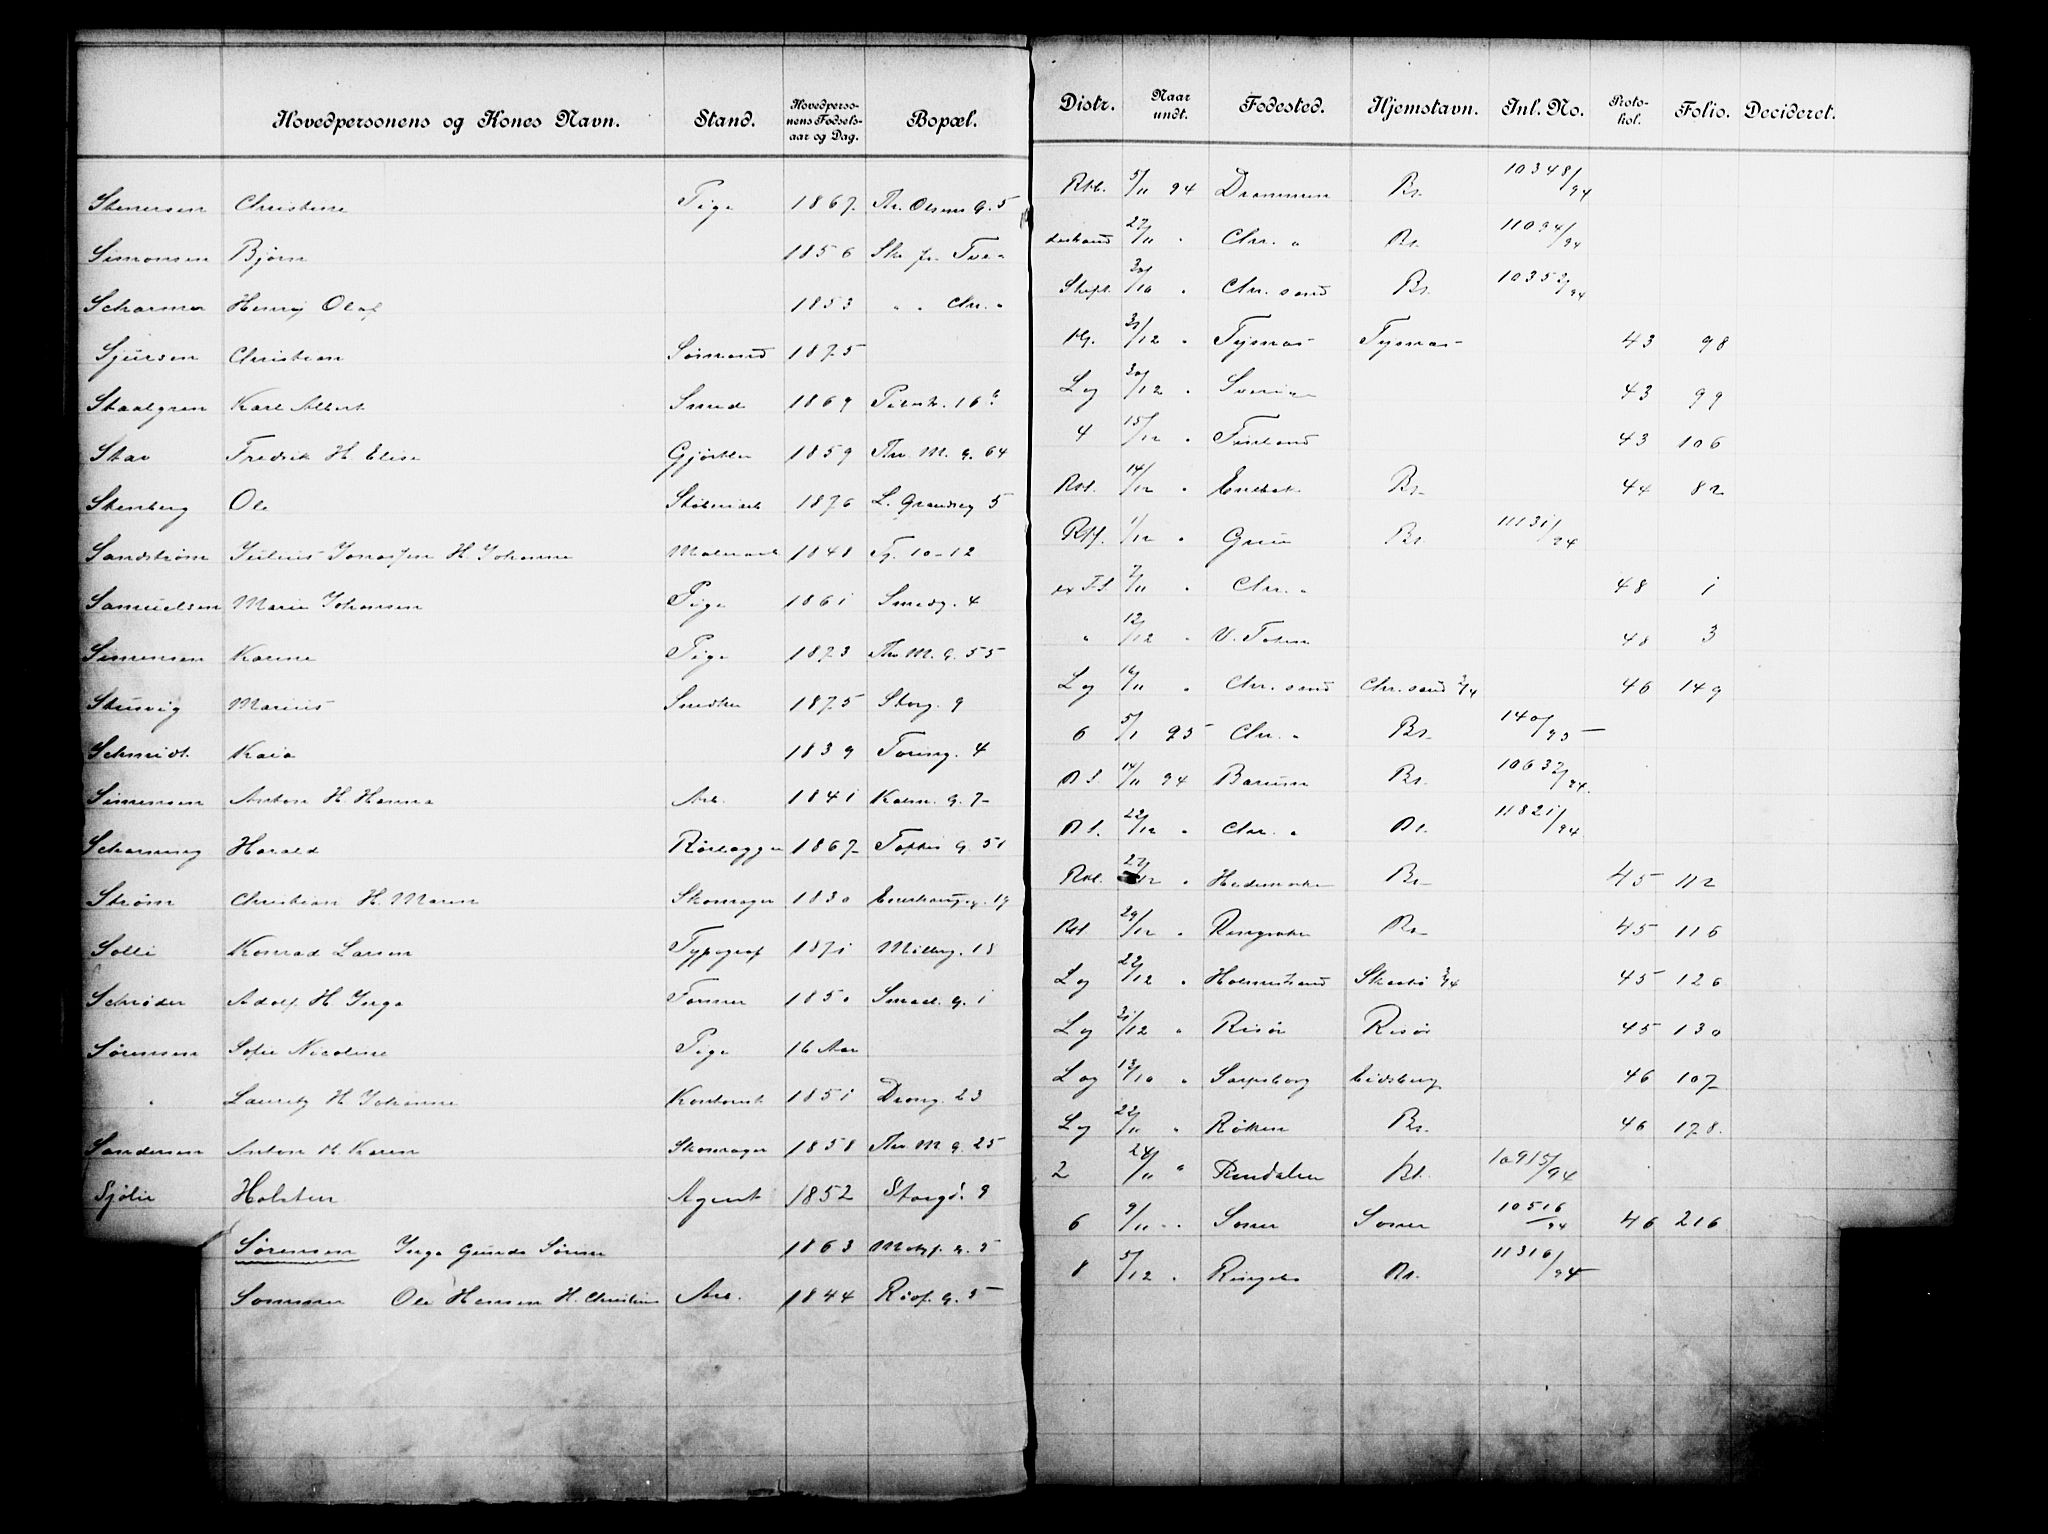 Hovedpersonens og Kones Navn. Stand. Hovedpersonens Fødselsaar og Dag. Bopæl. Distr. Naar undt. Fødested. Hjemstavn. Inl. No. Protokol. Folio. Decideret.
Stenersen Christine Pige 1867 Th. Olsens G. 5 5/11 94 Drammen Br. 10348/94
Simonsen Bjørn 1856 27/11 " Chr. " Br. 11094/94
Henrij Olaf 1853 " " Chr. " 30/10 " Chr. sand Br. 10353/94
Sjursen Christian Sømand 1875 31/12 " Tysnæs Tysnæs 43 98
Staalgren Karl Albert Smed 1869 Pilestr. 16 Log 30/12 " Sverige 43 99
Stav Fredrik H. Elise Gjørtler 1859 Thv. M. G. 64 4 15/12 " Finland 43 106
Stenberg Ole 1876 L. Grændseg 5 14/12 " Enebak Br. 44 82
Sandstrøm Julius H. Johanne 1848 Tg. 10-12 1/12 " Grue Br. 11131/94
Samuelsen Marie Johansen Pige 1861 Smedg. 4 7/11 " Chr. " 48 1
Simensen Karine Pige 1873 Thv. M. G. 55 " 12/12 " V. Toten 48 3
Marius 1875 Storg. 9 Log 16/11 " Chr. sand Chr. sand 46 149
Schmidt Kaia 1839 4 6 5/1 95 Chr. " Br. 140/95
Simensen Anton H. Hanna Arb. 1841 14/11 94 Bærum Br. 10632/94
Scharning Harald Rørlægger 1867 Toftes G. 51 22/12 " Chr. " Br. 11821/94
Strøm Christian H. Maren Skomager 1830 27/12 " Hedemarken Br. 45 112
Solli Konrad Larsen Typograf 1871 Møllerg. 18 29/12 " Ringsaker Br. 45 116
Schrøder Adolf H. Inga Former 1850 Smaal. G. 1 Log 22/12 " Holmestrand 45 126
Sørensen Sofie Nicoline Pige 16 Aar Log 31/12 " Risør Risør 45 130
" Lauritz H. Johanne Kontorist 1851 Drong. 23 Log 13/10 " Sarpsborg Eidsberg 46 107
Sandersen Anton H. Karen Skomager 1858 Thv. M. G. 25 Log 22/11 " Røken Br. 46 178
Sjølie Holsten Agent 1852 9 2 24/11 " Rendalen Br. 10915/94
Sørensen Inga Gunda Sørine 1863 6 9/11 " Soner Soner 10516/94 46 216
Sommer Ole Hansen H. Christine Arb. 1844 5 8 5/12 " Ringebo Br. 11316/94